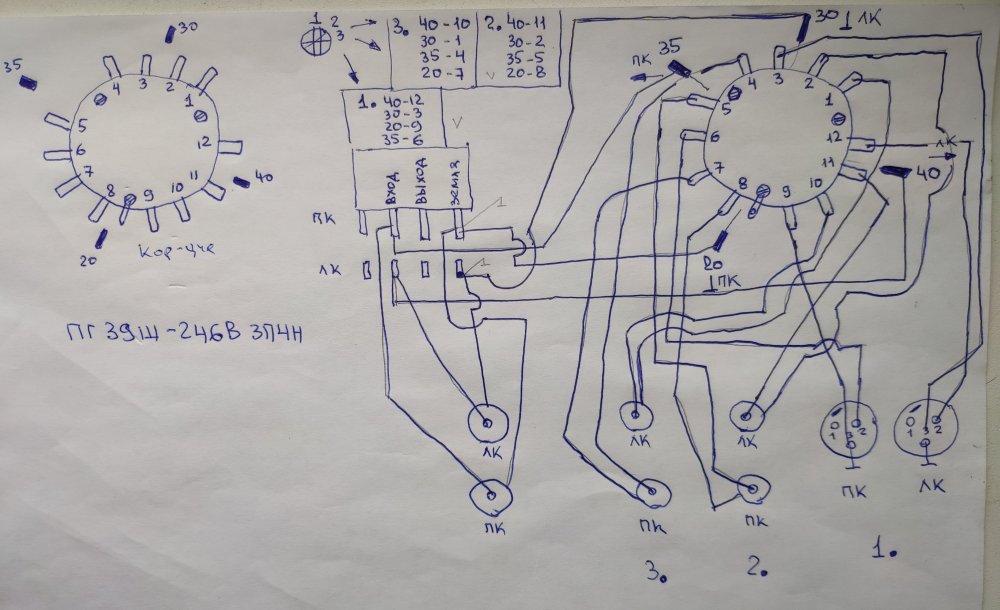 30
35
4 3 2 1
5 12
6
7 8 9 10 11
40
20
Кор-уче
ПГ 39Ш -246В 3П4Н
1 2
3
3. 40-10
30-1
35-4
20-7
2. 40-11
30-2
35-5
20-8
1. 40-12
30-3
20-9
35-6
ВХОД
ВЫХОД
ЗЕМЛЯ
ПК
1
ЛК
1
ЛК
ПК
30 ⊥ ЛК
ПК
35
4 3 2 1
5 12
6
7 8 9 10 11
ЛК
40
20
⊥ ПК
ЛК
ЛК
ПК
ПК
0 2
1 3
ПК
0 2
1 3
ЛК
3. 2. 1.